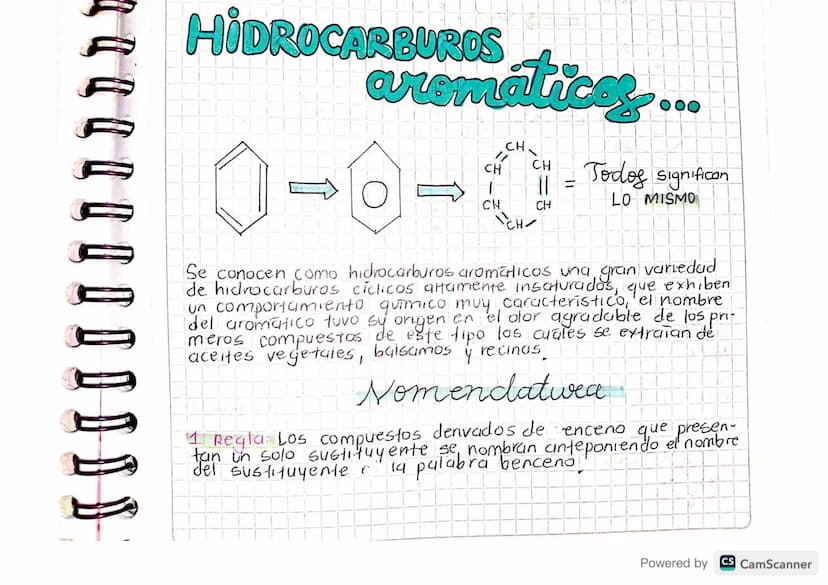 HIDROCARBUROS
aromáticos...
CH
CH CH
CH CH
CH
= Todos significan
LO MISMO
Se conocen como hidrocarburos aromáticos una gran variedad
de hidrocarburos cíclicos altamente insaturados, que exhiben
un comportamiento químico muy característico, el nombre
del aromático tuvo su origen en el olor agradable de los pri-
meros compuestos de este tipo los cuales se extraían de
aceites vegetales, bálsamos y recinas.
Nomenclatura
1 Regla: Los compuestos derivados de enceno que presen-
tan un solo sustituyente se nombran anteponiendo el nombre
del sustituyente la palabra benceno.
Powered by CS CamScanner